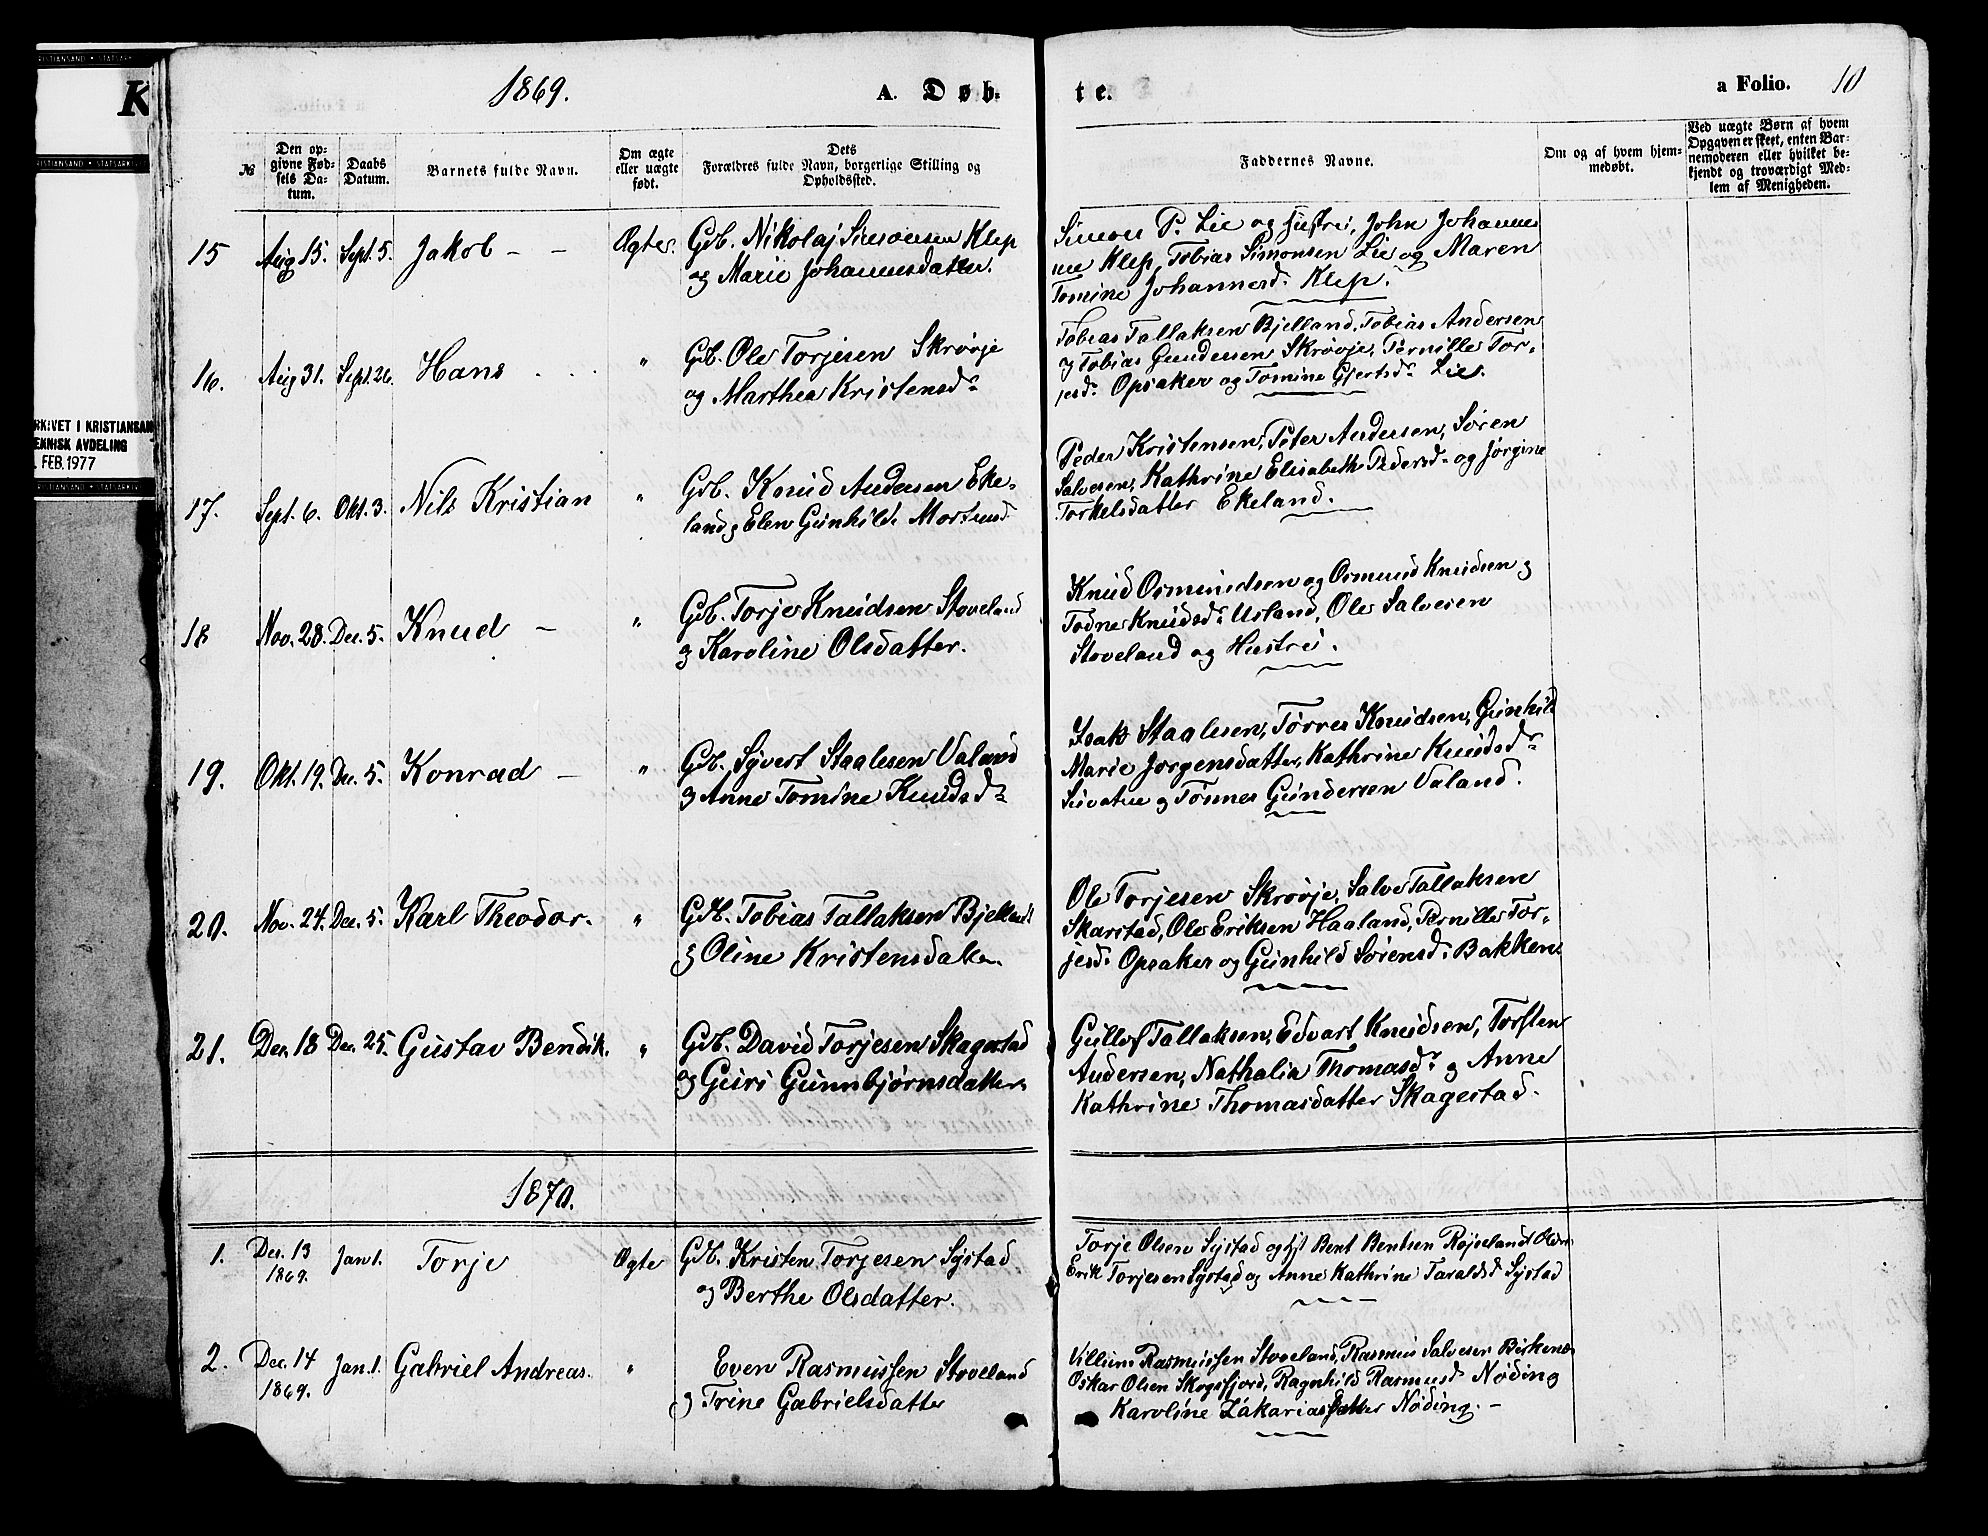 RISTIANSAND • STATSARK
K
RISTIANSAND • STATSARKIV
RKIVET I KRISTIANSAN
EKNISK AVDELING
. FEB. 1977
RISTIANSAND • STATSARKIV
1869.
A. Døb-
te.
a Folio. 10
№
Den op-
givne Fød-
sels Da-
tum.
Daabs
Datum.
Barnets fulde Navn.
Om ægte
eller uægte
født.
Dets
Forældres fulde Navn, borgerlige Stilling og
Opholdssted.
Faddernes Navne.
Om og af hvem hjem-
medøbt.
Ved uægte Børn af hvem
Opgaven er skeet, enten Bar-
nemoderen eller hvilket be-
kjendt og troværdigt Med-
lem af Menigheden.
15 Aug 15. Sept. 5. Jakob - - Ægte. Gdb. Nikolaj Simonsen Klep
og Marie Johannesdatter.
Simon P. Lie og Hustru, John Johannes
Klep, Tobias Simonsen Lie og Maren
Tomine Johannesd. Klep.
16. Aug 31. Sept. 26. Hans " Gdb. Ole Torjesen Skrøvje
og Marthea Kristensdr
Tobias Tallaksen Bjelland, Tobias Andersen
og Tobias Gundersen Skrøvje, Pernille Tor-
jesd. Opsaker og Tomine Gjertsdr Lie.
17. Sept. 6. Okt. 3. Nils Kristian " Gdb. Knud Andersen Eke-
land og Elen Gunhild. Mortensd
Peder Kristensen, Peter Andersen, Søren
Salvesen, Kathrine Elisabeth Pedersd. og Jørgine
Torkelsdatter Ekeland.
18 Nov. 28. Dec. 5. Knud - " Gdb. Torje Knudsen Stoveland
og Karoline Olsdatter.
Knud Osmundsen og Osmund Knudsen og
Todne Knudsdr Usland, Ole Salvesen
Stoveland og Hustru.
19. Okt. 19. Dec. 5. Konrad - " Gdb. Syvert Staalesen Valand
og Anne Tomine Knudsdr
Isak Staalesen, Tørres Knudsen, Gunhild
Marie Jørgensdatter, Kathrine Knudsdr
og Tønnes Gundersen Valand.
20. Nov. 24. Dec. 5. Karl Theodor. " Gdb. Tobias Tallaksen Bjelland
og Oline Kristensdatter.
Ole Torjesen Skrøvje, Salve Tallaksen
Skarstad, Ole Eriksen Haaland, Pernille Tor-
jesd. Opsaker og Gunhild Sørensd. Bakken
21. Dec. 18 Dec. 25. Gustav Bendik. " Gdb. David Torjesen Skagestad
og Guri Gunnbjørnsdatter
Gullof Tallaksen, Edvart Knudsen, Torsten
Andersen, Nathalia Thomasdr og Anne
Kathrine Thomasdatter Skagestad.
1870.
1. Dec. 13
1869. Jan 1. Torje Ægte Gdb. Kristen Torjesen Systad
og Berthe Olsdatter.
Torje Olsen Systad og Bent Bentsen Røiseland
Erik Torjesen Systad og Anne Kathrine Taraldsd Systad
2. Dec. 14
1869. Jan. 1. Gabriel Andreas. " Even Rasmussen Stoveland
og Trine Gabrielsdatter
Villum Rasmussen Stoveland, Rasmus Salvesen Birkenes
Oskar Olsen Skogsfjord, Ragnhild Rasmusd Nøding
Karoline Zakariasdatter Nøding. -